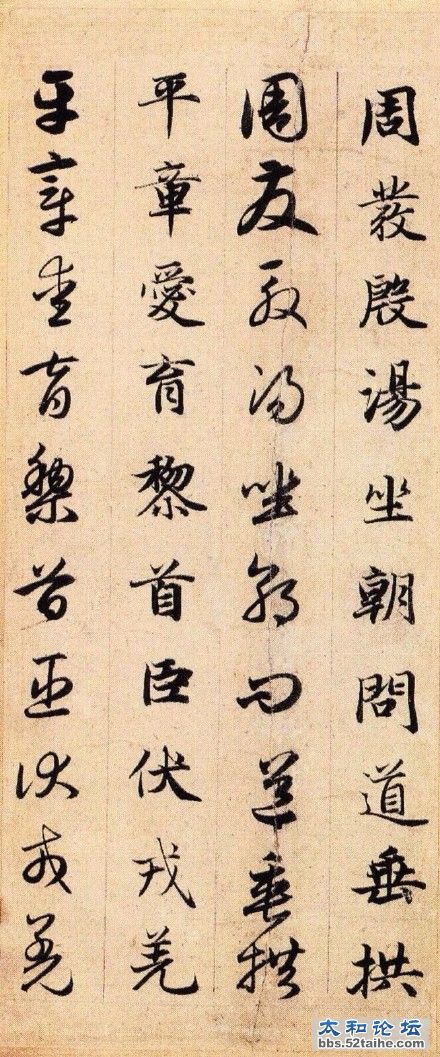 周發殷湯坐朝問道垂拱
周發殷湯坐朝問道垂拱
平章愛育黎首臣伏戎羌
平章愛育黎首臣伏戎羌
太和论坛
bbs.52taihe.com